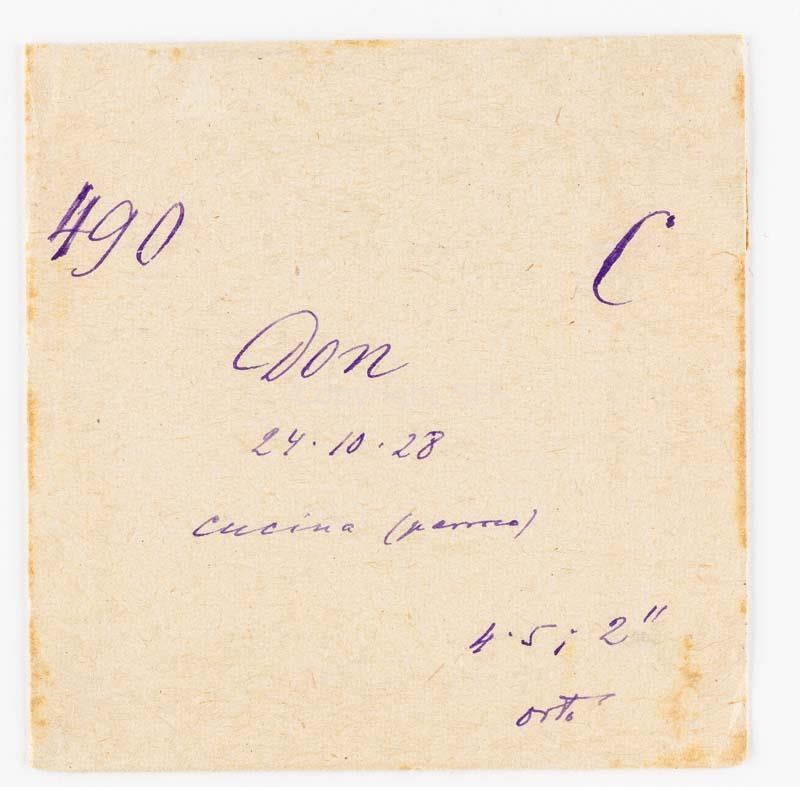 490 C
Don
24·10·28
cucina (parroco)
4·5; 2"
orto